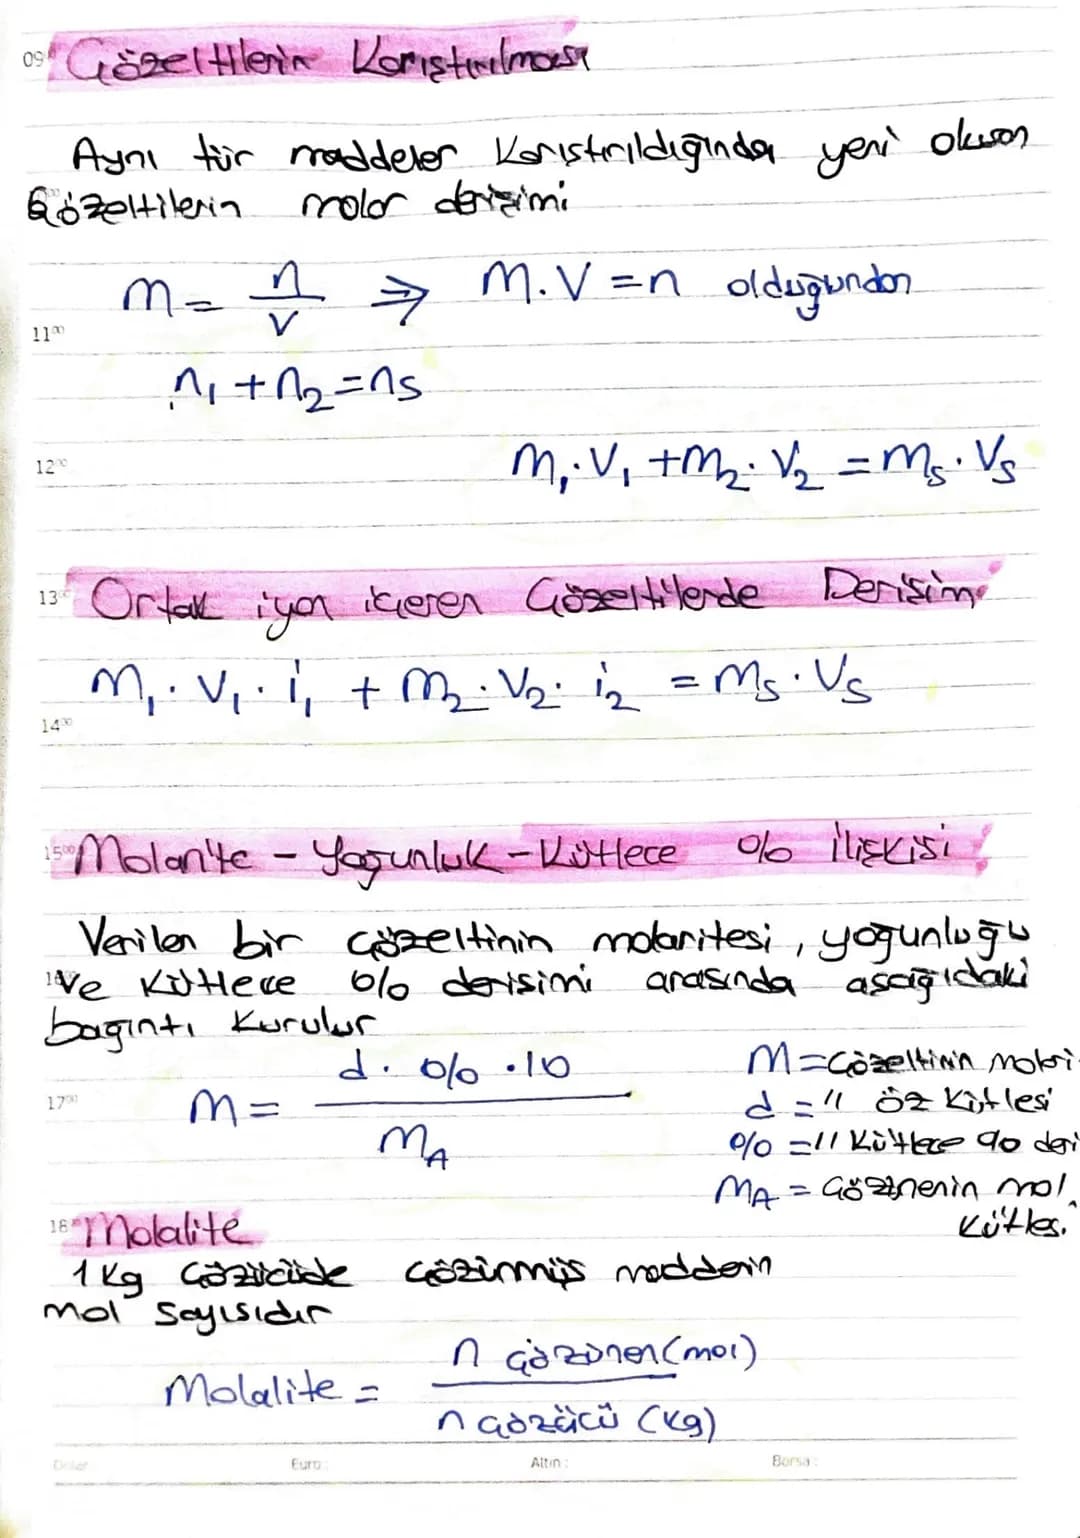 09⁰⁰ Çözeltilerin Karıştırılması
Aynı tür maddeler Karıştırıldığında yeni oluşan
Çözeltilerin molar derişimi
M = n/V ⇒ M.V = n olduğundan
11⁰⁰
n₁ + n₂ = nₛ
12⁰⁰ M₁.V₁ + M₂.V₂ = Mₛ.Vₛ
13⁰⁰ Ortak iyon içeren Çözeltilerde Derişim
M₁.V₁.i₁ + M₂.V₂.i₂ = Mₛ.Vₛ
14⁰⁰
15⁰⁰ Molarite - Yoğunluk - Kütlece % İlişkisi
Verilen bir çözeltinin molaritesi, yoğunluğu
ve Kütlece % derişimi arasında aşağıdaki
bağıntı Kurulur
M = d.%.10/MA
M = Çözeltinin molari
17⁰⁰
d = " öz kütlesi
% = " kütlece % deri
MA = Çözünenin mol.
kütles.
18⁰⁰ Molalite
1 Kg Çözücüde çözünmüş maddenin
mol sayısıdır
Molalite = n çözünen (mol)/n çözücü (kg)
Dolar Euro: Altın: Borsa: